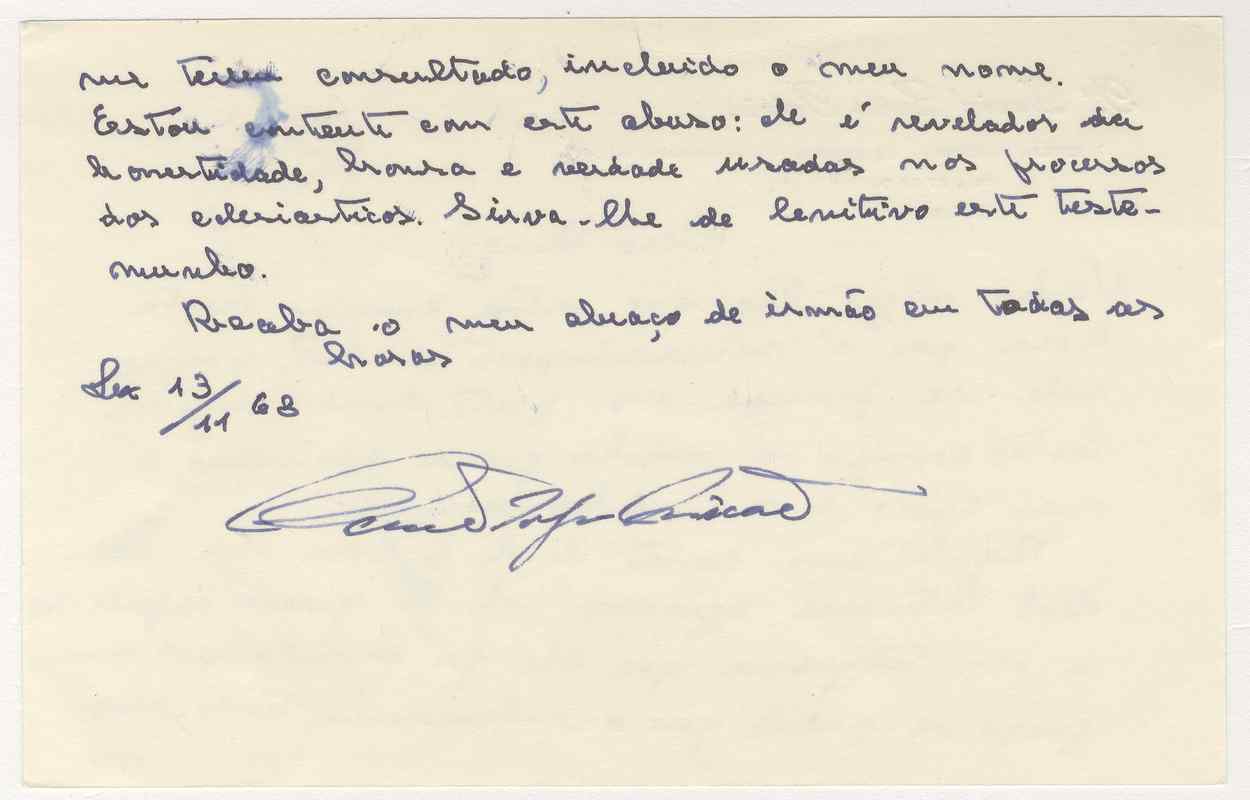 me terem consultado, incluido o meu nome.
Estou contente com este abuso: ele é revelador da
honestidade, honra e verdade usadas nos processos
dos eclesiasticos. Sirva-lhe de lenitivo este teste-
munho.
Receba o meu abraço de irmão em todas as
horas
Lex 13/11 68